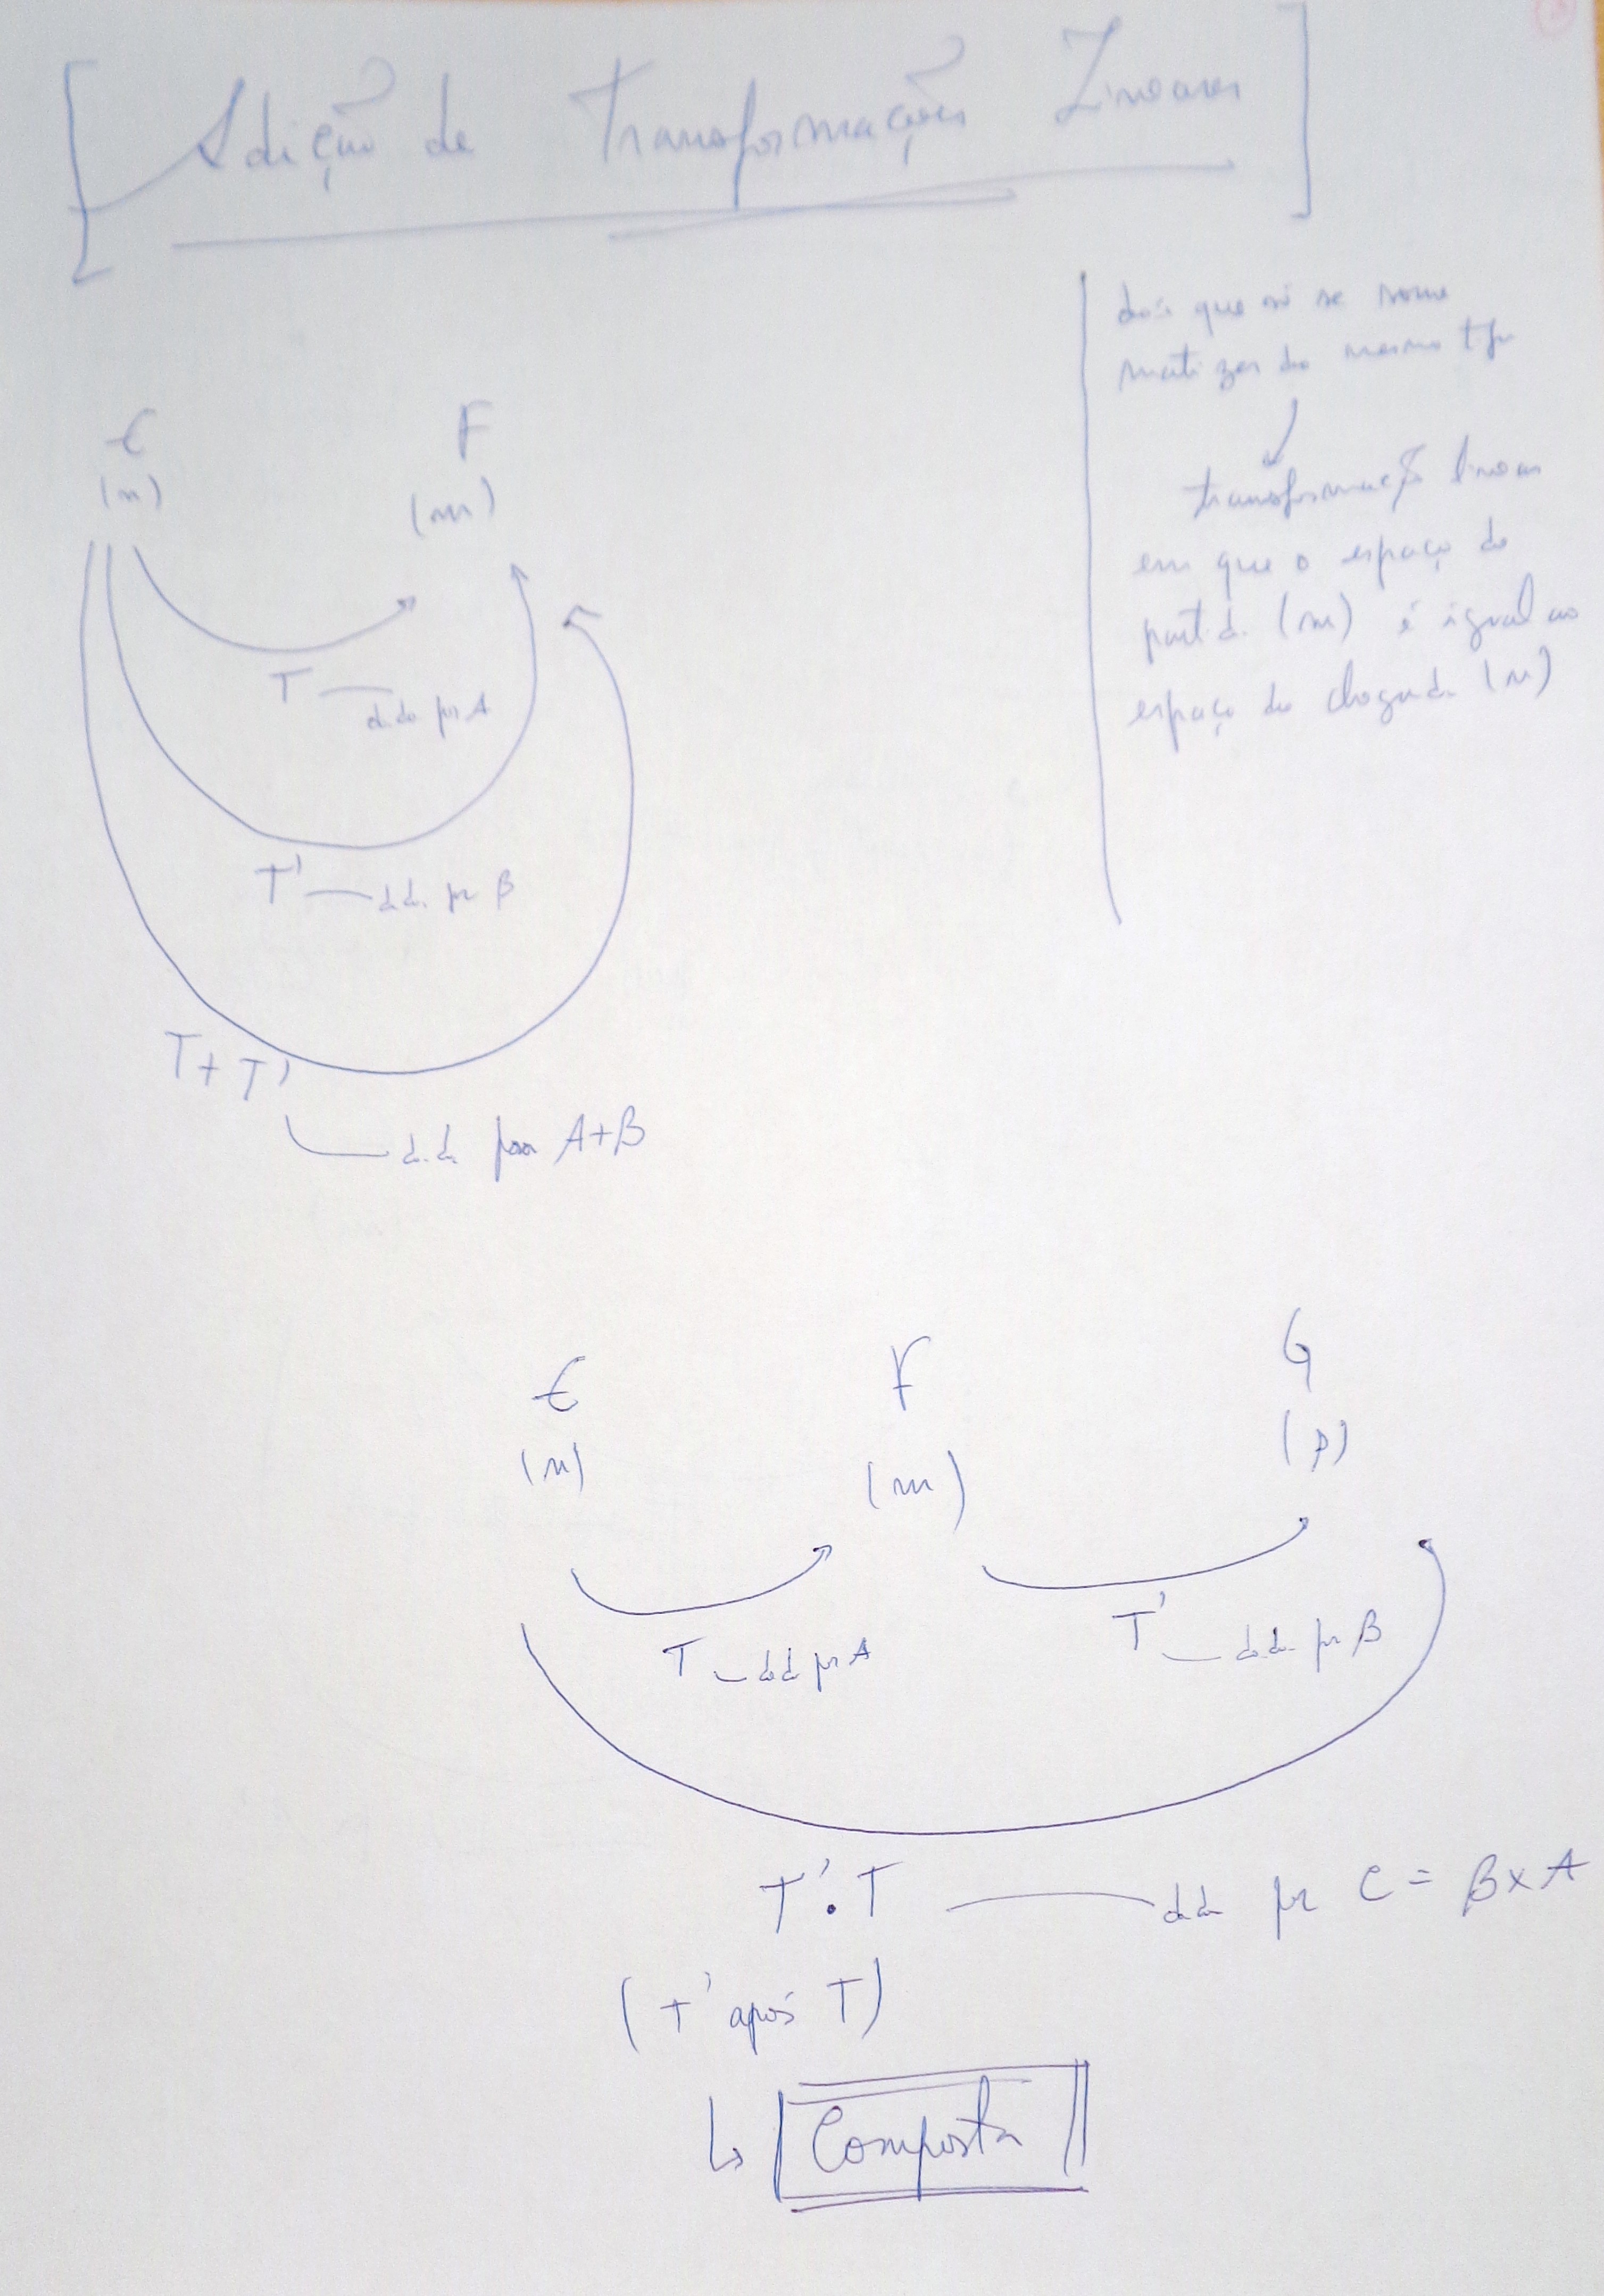 Adição de Transformações Lineares
dois que só se soma
matizes do mesmo tipo
transformação linear
em que o espaço de
partida (m) é igual ao
espaço de chegada (n)
E F
(n) (m)
T dada por A
T' dada por B
T+T'
dada por A+B
E F G
(n) (m) (p)
T dada por A
T' dada por B
T'.T dada por C = B×A
(T' após T)
Composta